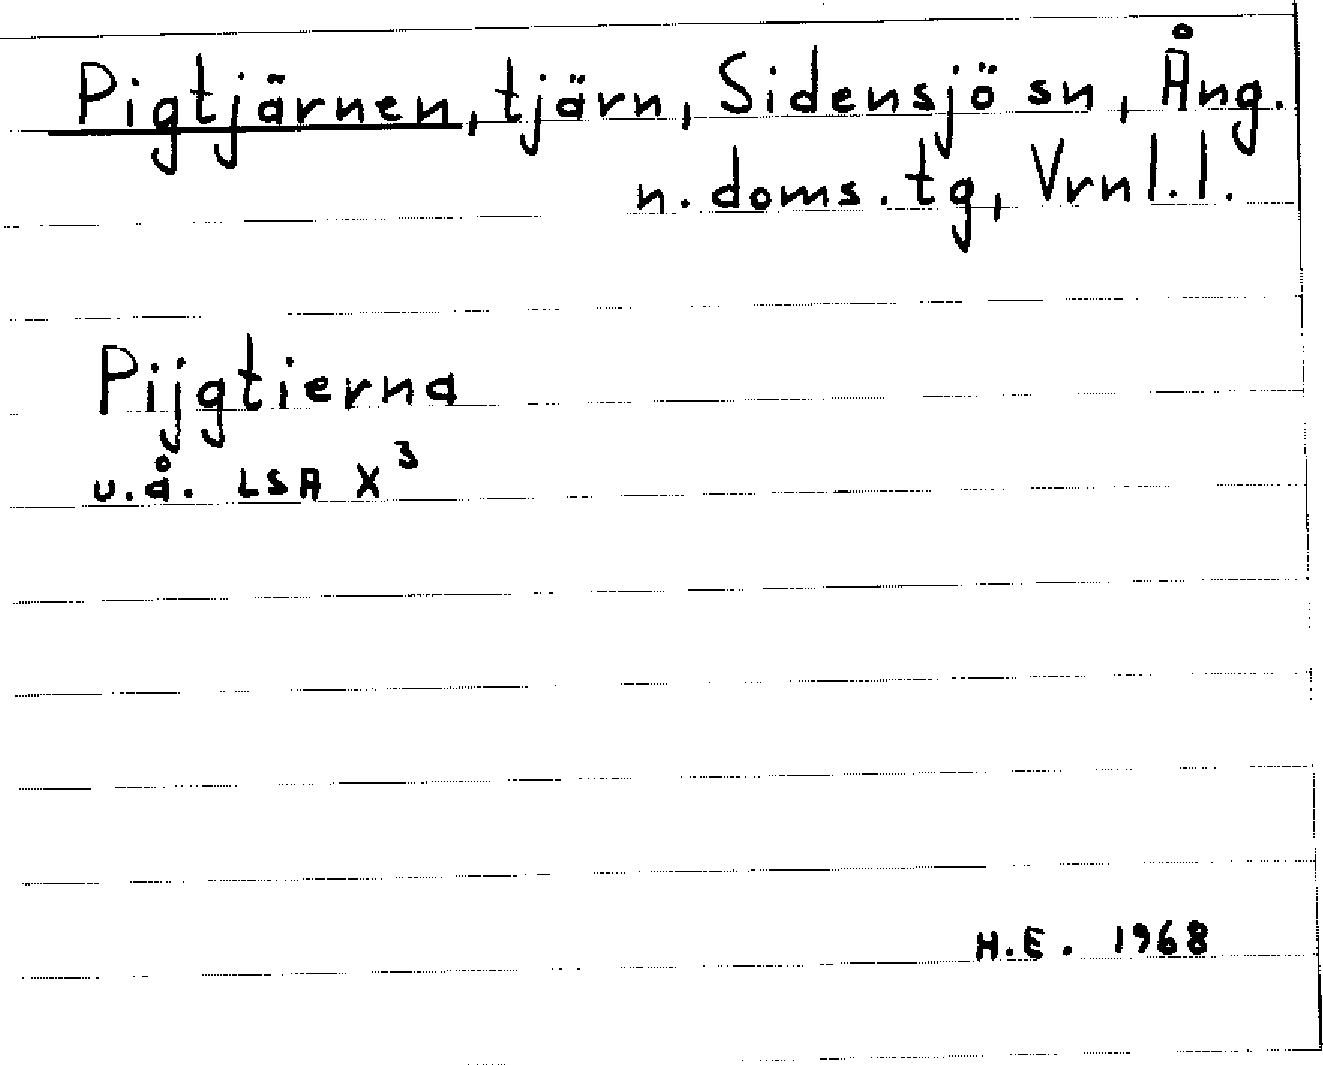 Pigtjärnen, tjärn, Sidensjö sn, Ång.
n. doms. tg, Vrnl. l.
Pijgtierna
u.å. LSA X³
H.E. 1968